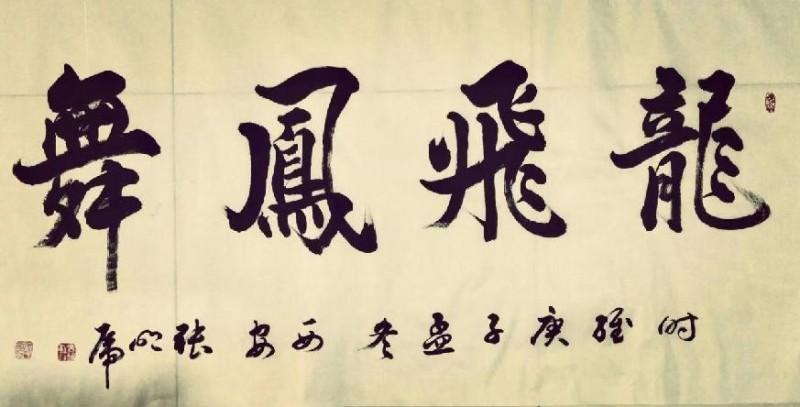 龍飛鳳舞
時維庚子孟冬西安張心虎